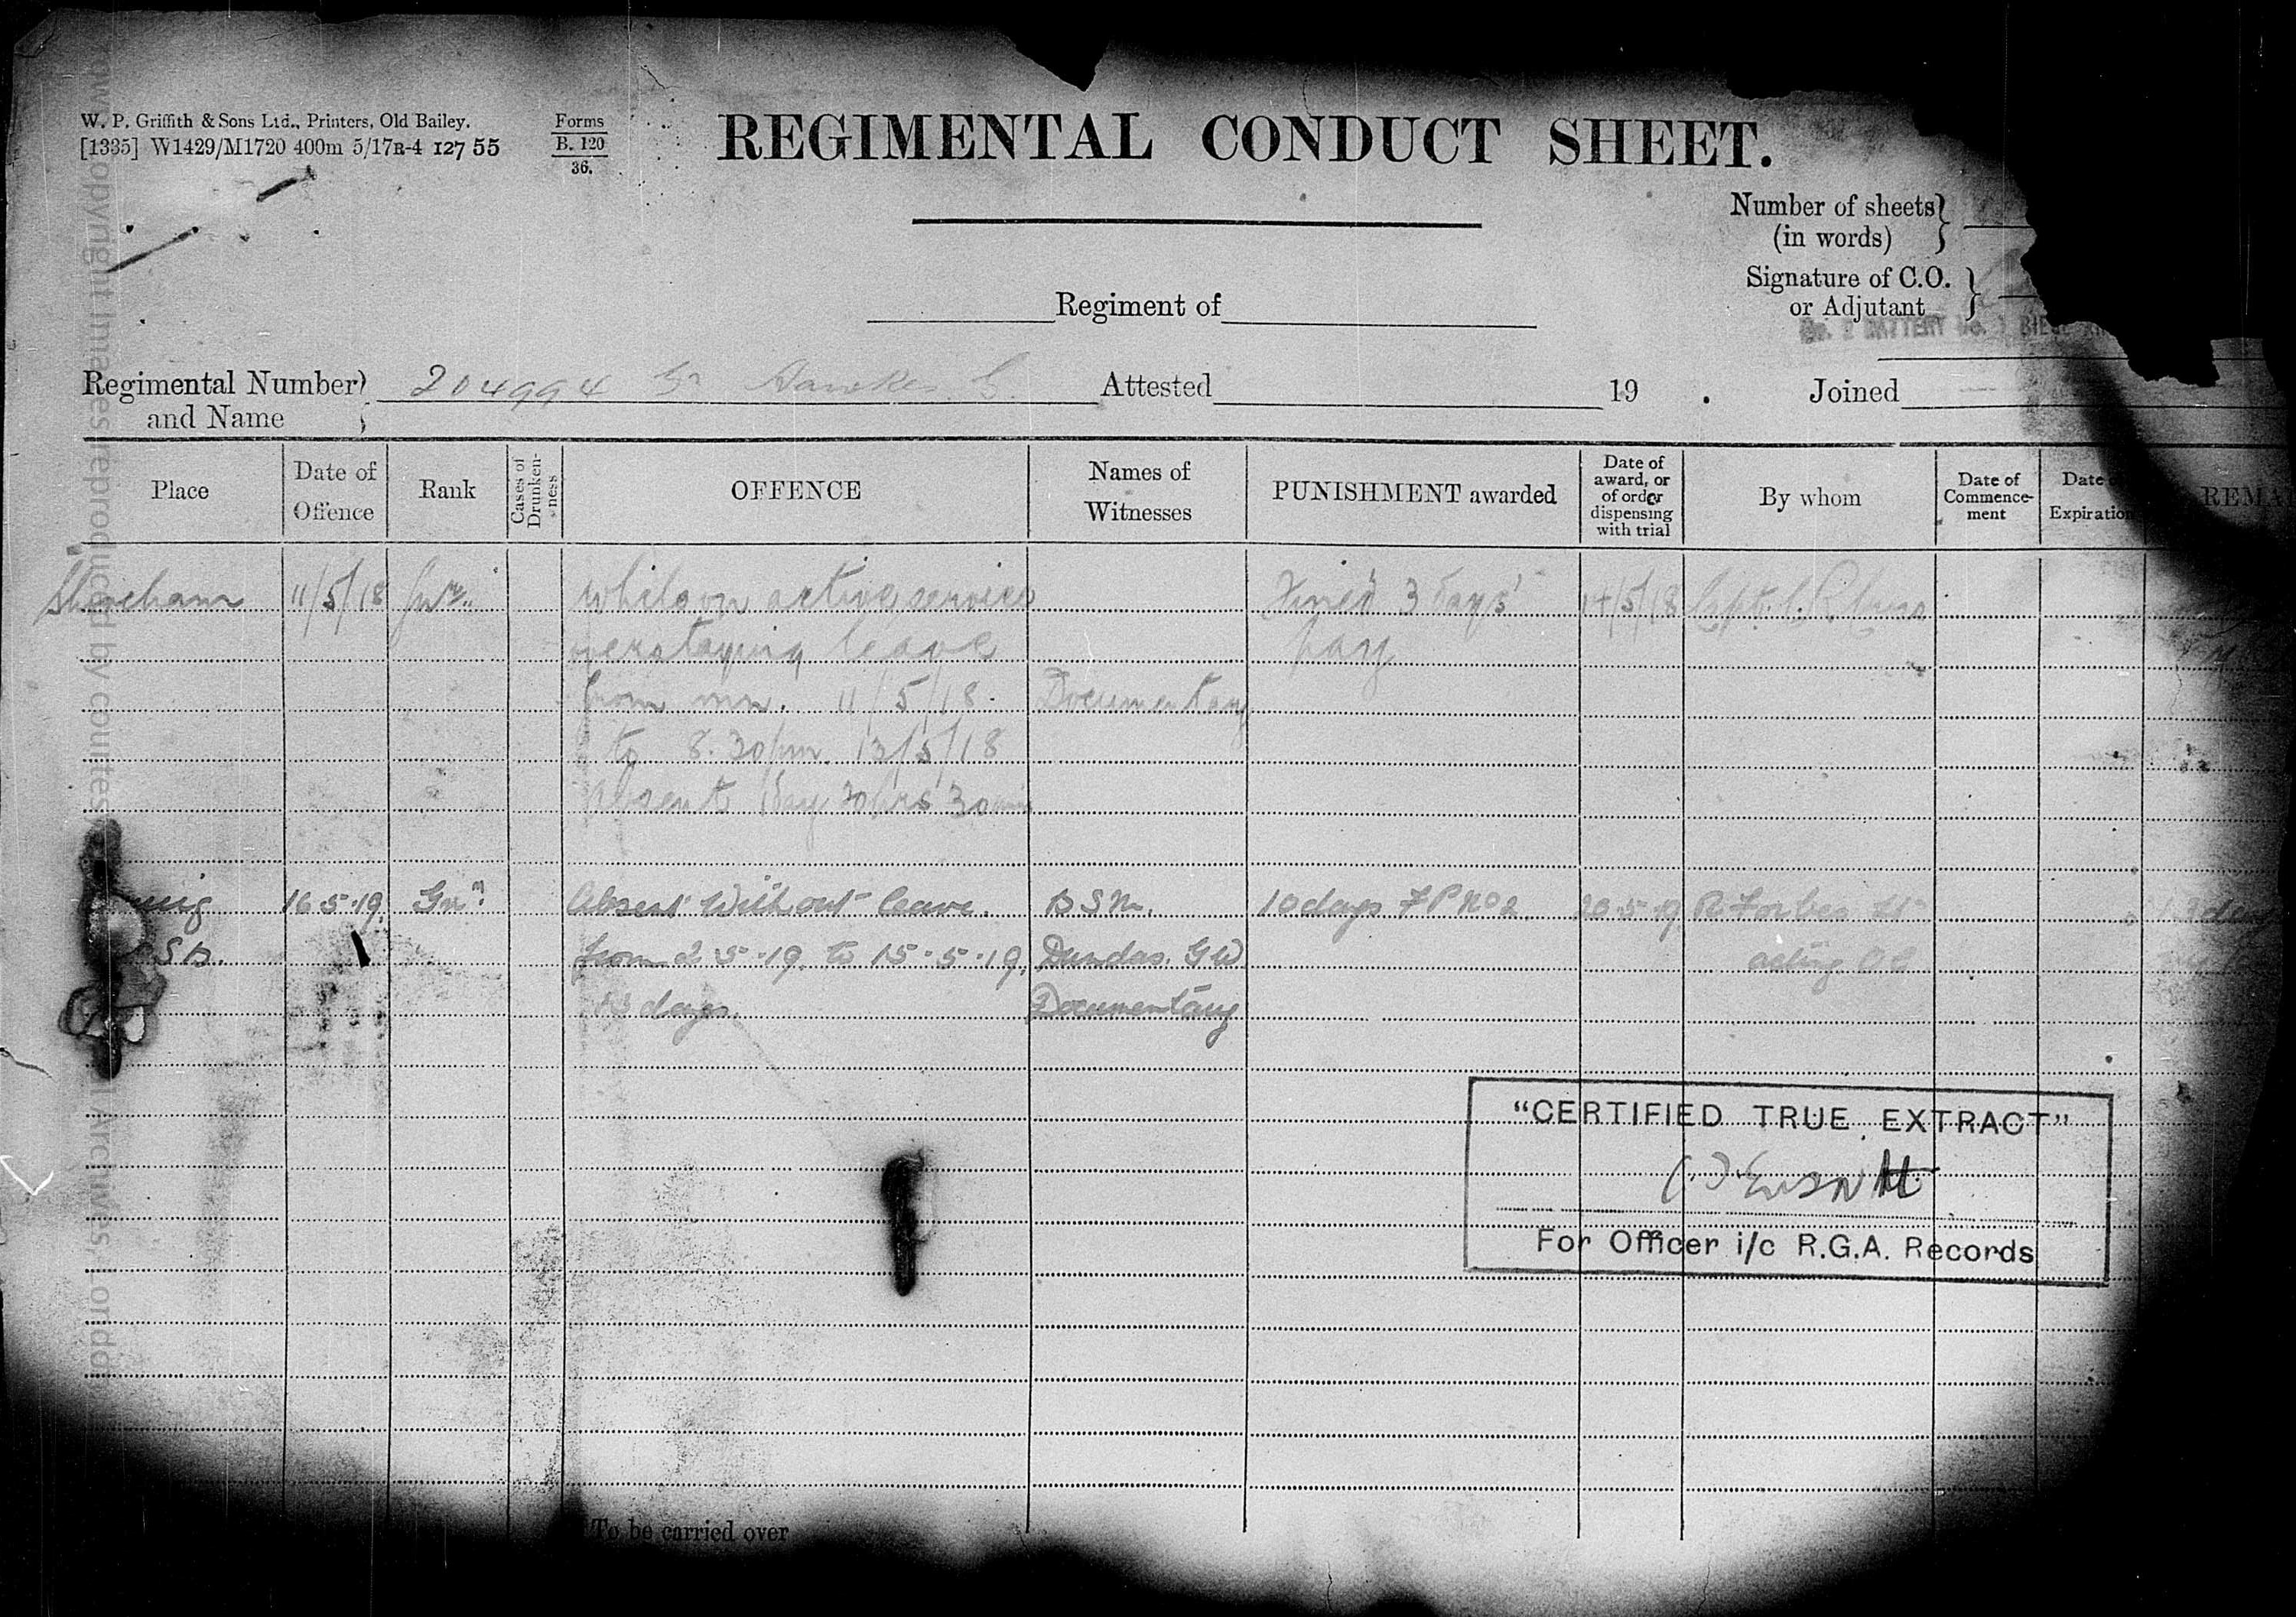 W. P. Griffith & Sons Ltd., Printers, Old Bailey.
[1335] W1429/M1720 400m 5/17R-4 127 55
Forms
B. 120
36.
REGIMENTAL CONDUCT SHEET.
Number of sheets
(in words)
Signature of C.O.
or Adjutant
Regiment of
BATTERY No.
Regimental Number
and Name
204994 Gr Hawkes G.
Attested 19 .
Joined
Place
Date of
Offence
Rank
Cases of
Drunken-
ness
OFFENCE
Names of
Witnesses
PUNISHMENT awarded
Date of
award, or
of order
dispensing
with trial
By whom
Date of
Commence-
ment
Date
Expiration
REMA
Shoreham 11/5/18 Gnr. Whilst on active service Fined 3 days' 14/5/18 Capt.
overstaying leave pay
from mn. 11/5/18. Documentary
to 8.30 pm. 13/5/18
Absent 1 day 20 hrs 30 min
16.5.19 Gnr. Absent without leave. B S M. 10 days F P No 2. 20.5.19 R. Forbes Lt
S B. from 2.5.19. to 15.5.19. Dundas. G W acting O C
13 days. Documentary
"CERTIFIED TRUE EXTRACT"
For Officer i/c R.G.A. Records
To be carried over
copyright Images reproduced by courtes
Archives, London